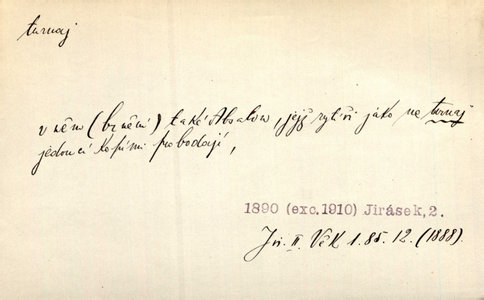 turnaj
v něm (brnění) také Absalon, jejž rytíři jako na turnaj
jedoucí kopími probodají,
1890 (exc.1910) Jirásek,2.
Jir. II. Věk 1.85.12. (1888).